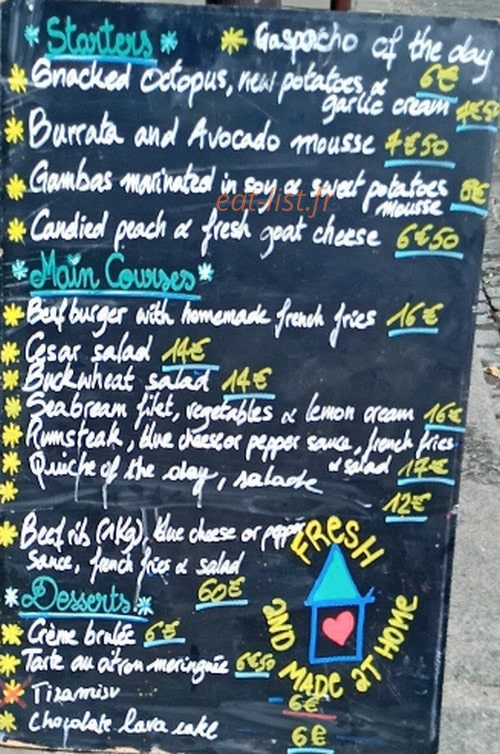 Starters
Gaspacho of the day
6€
Snacked Octopus, new potatoes &
garlic cream
Burrata and Avocado mousse 7€50
Gambas marinated in soy & sweet potatoes 8€
mousse
eat-list.fr
Candied peach & fresh goat cheese 6€50
Main Courses
Beef burger with homemade french fries 16€
Cesar salad 14€
Buckwheat salad 14€
Seabream filet, vegetables & lemon cream 16€
Rumsteak, blue cheese or pepper sauce, french fries
& salad 17€
Quiche of the day, salade
12€
Beef rib (1Kg), blue cheese or pepper
sauce, french fries & salad
60€
FRESH
AND MADE AT HOME
Desserts
Crème brulée 6€
Tarte au citron meringuée 6€50
Tiramisu 6€
Chocolate lava cake 6€